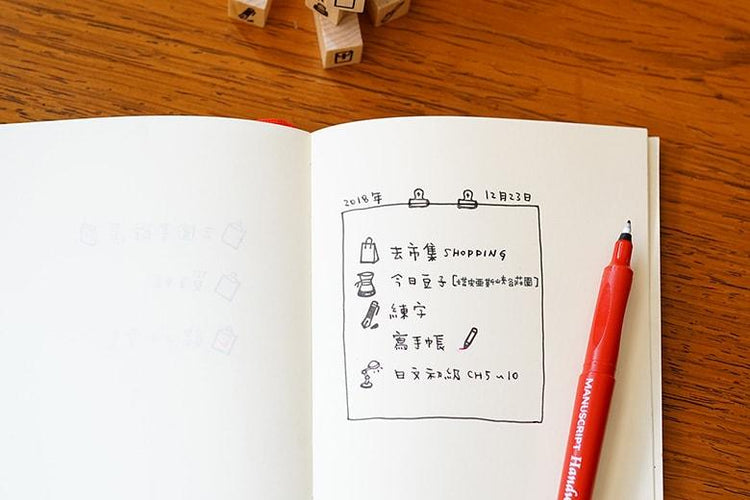 2018年 12月23日
去市集 SHOPPING
今日豆子
練字
寫手帳
日文初級 CH5~10
MANUSCRIPT Handw